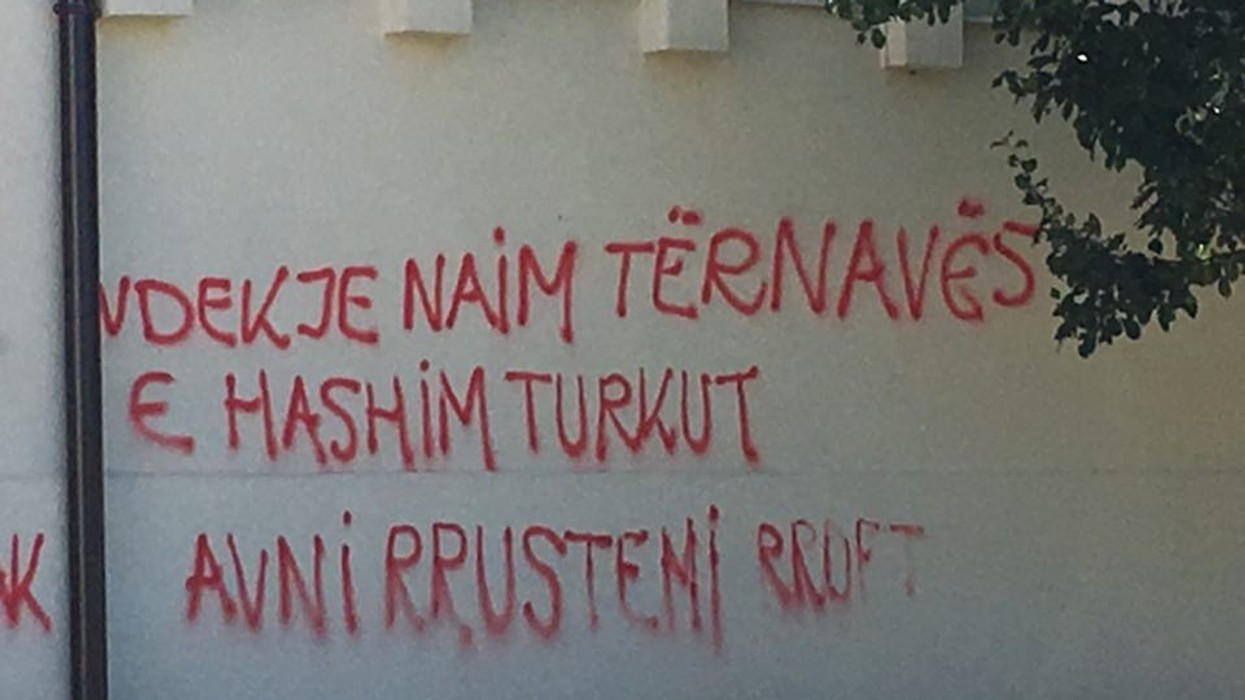 VDEKJE NAİM TËRNAVËS
E HASHİM TURKUT
AVNİ RRUSTEMİ RROFT